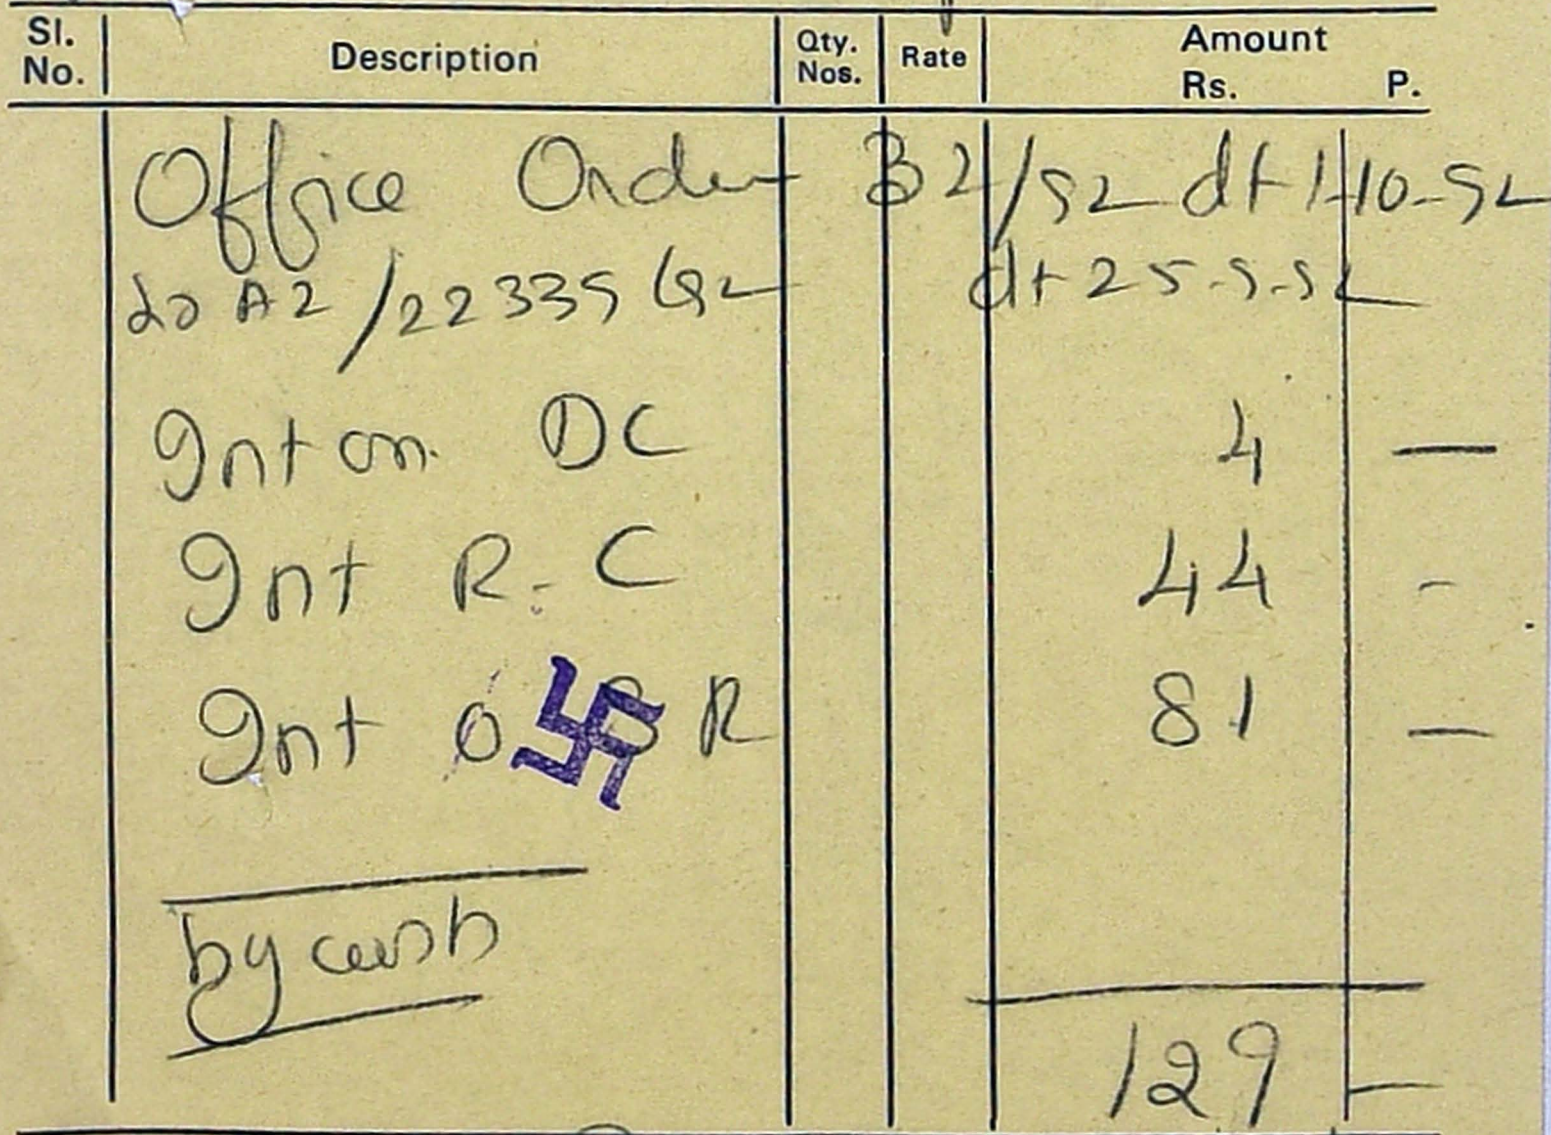 Sl. No. Description Qty. Nos. Rate Amount Rs. P.
Office Order 32/92 dt 1-10-92
A2/22335/92 dt 25-9-92
Int on DC 4 —
Int R.C 44 -
Int O B R 81 —
by cash
129 —